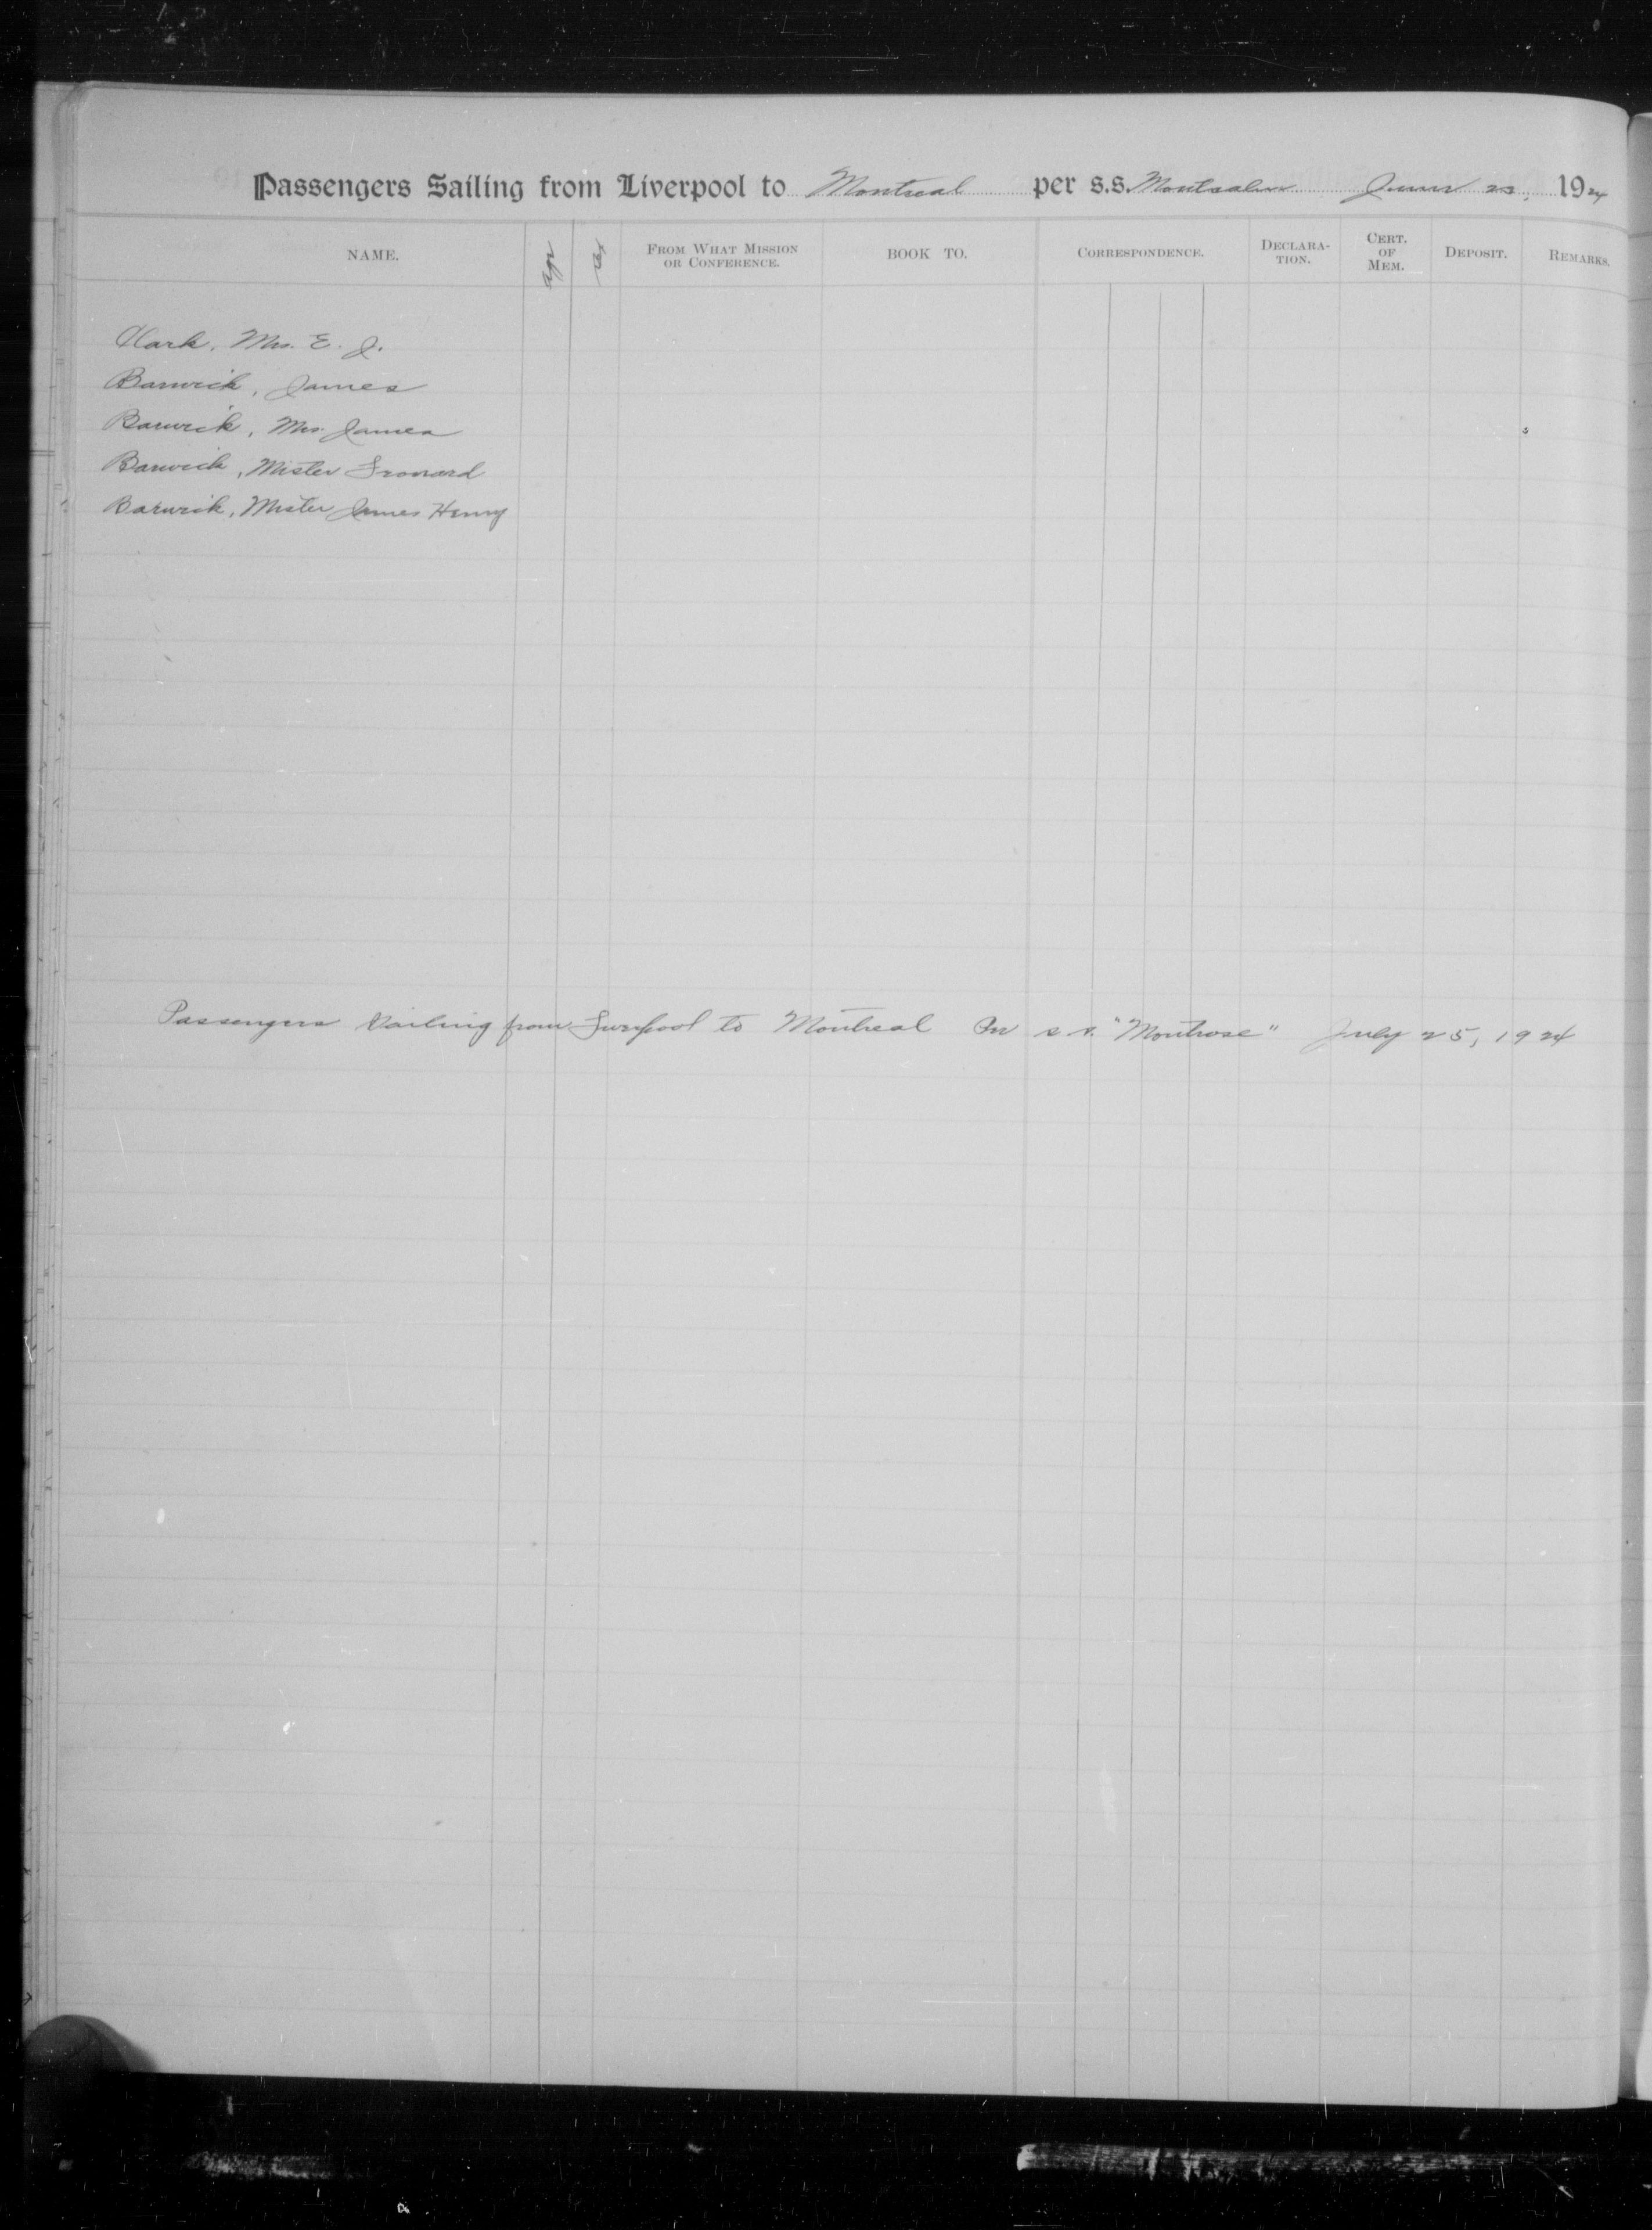 Passengers Sailing from Liverpool to Montreal per s.s. Montcalm June 23, 1924
NAME. Age Sex FROM WHAT MISSION OR CONFERENCE. BOOK TO. CORRESPONDENCE. DECLARA-TION. CERT. OF MEM. DEPOSIT. REMARKS.
Clark, Mrs. E. J.
Barwick, James
Barwick, Mrs. James
Barwick, Mister Leonard
Barwick, Mister James Henry
Passengers Sailing from Liverpool to Montreal Per s.s. "Montrose" July 25, 1924